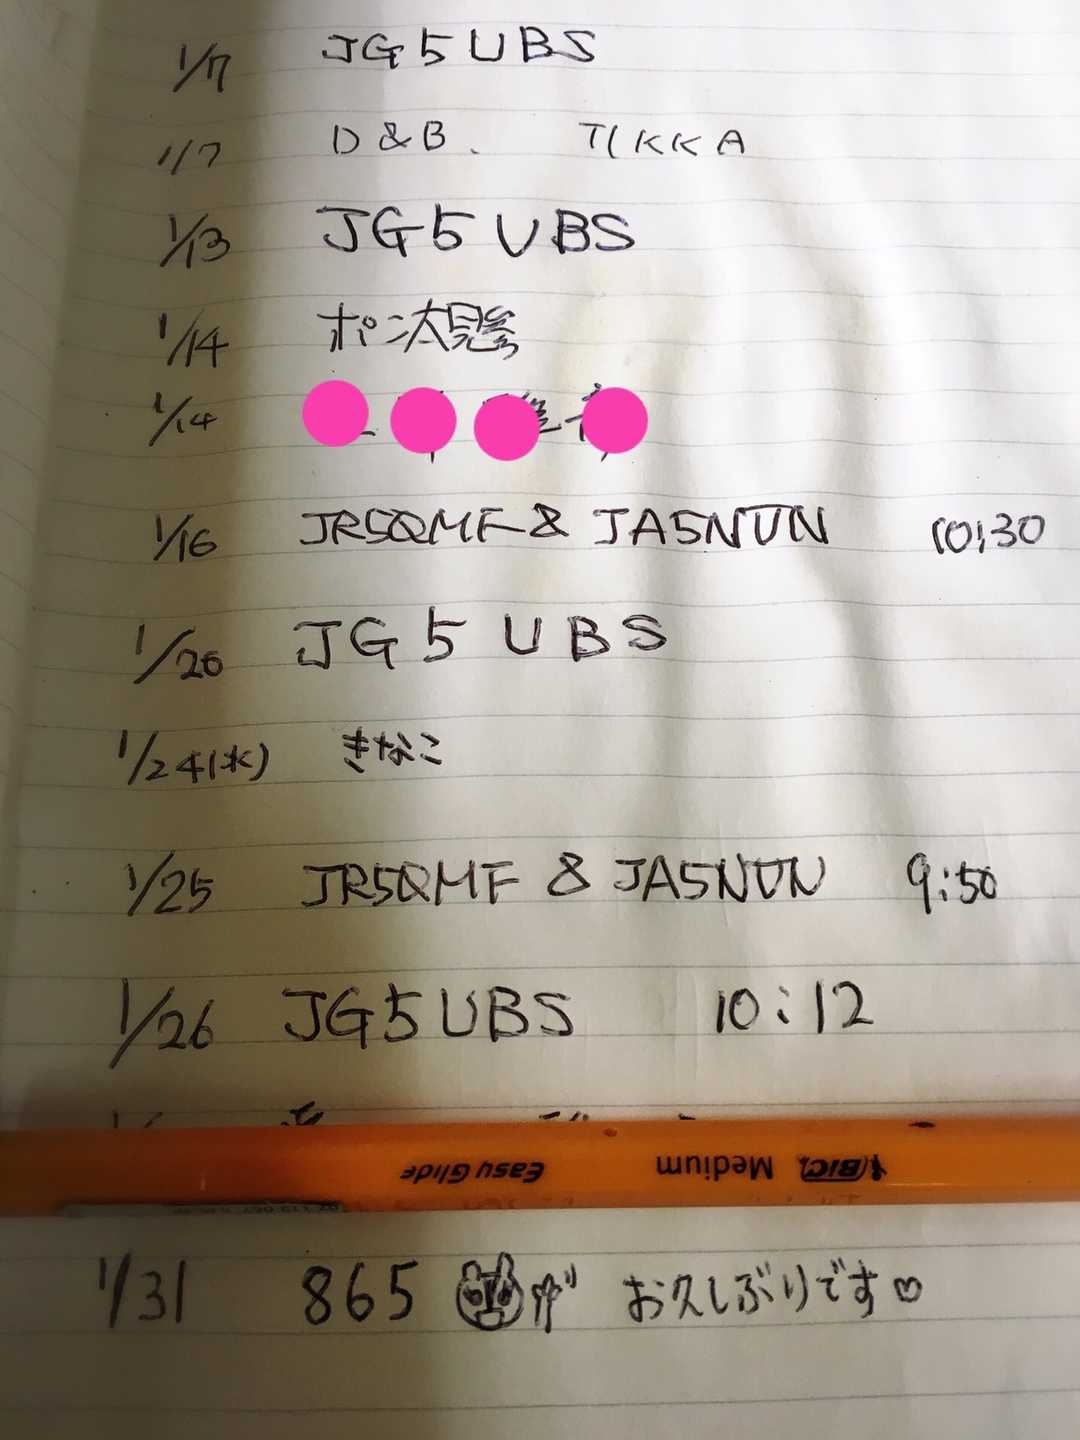 1/7 JG5UBS
1/7 D&B. TIKKA
1/13 JG5UBS
1/14 ポン太
1/14
1/16 JR5QMF & JA5NUN 10:30
1/20 JG5UBS
1/24(水) きなこ
1/25 JR5QMF & JA5NUN 9:50
1/26 JG5UBS 10:12
BIC Medium Easy Glide
1/31 865 お久しぶりです♡